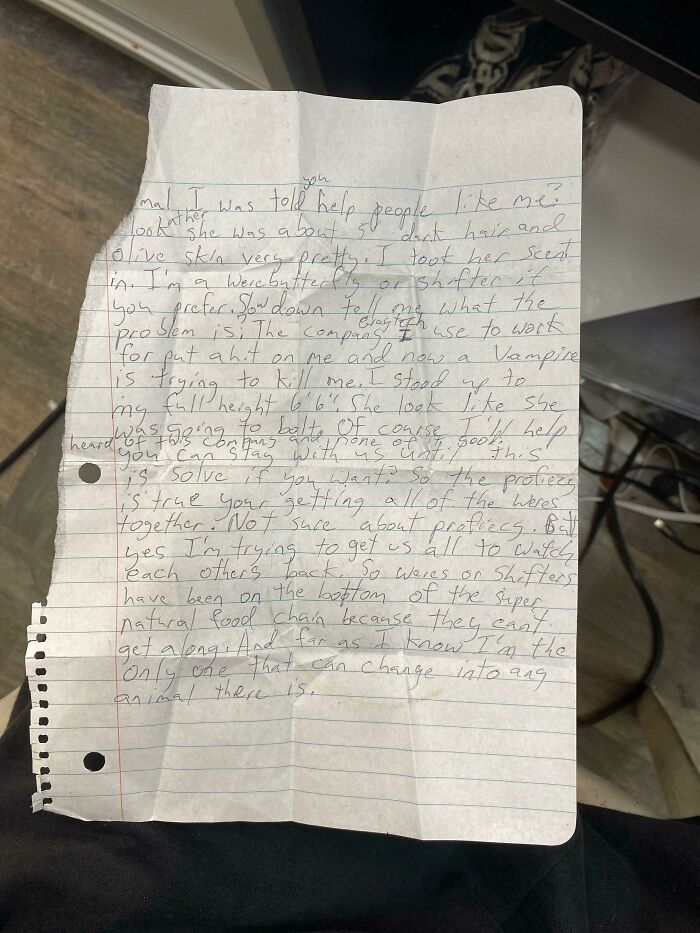 you
mal I was told help people like me?
look ather she was about 5' dark hair and
olive skin very pretty. I took her scent
in. I'm a werebutterfly or shifter if
you prefer. Slow down tell me what the
problem is? The company I use to work
for put a hit on me and now a Vampire
is trying to kill me. I stood up to
my full height 6'6". She look like she
was going to bolt. Of coarse I'll help
heard of this company and none of it good.
you can stay with us until this
is solve if you want? So the profiecy
is true your getting all of the weres
together. Not sure about profiecy. But
yes I'm trying to get us all to watch
each other's back. So weres or shifters
have been on the bottom of the super
natural food chain because they can't
get along. And far as I know I'm the
only one that can change into any
animal there is.